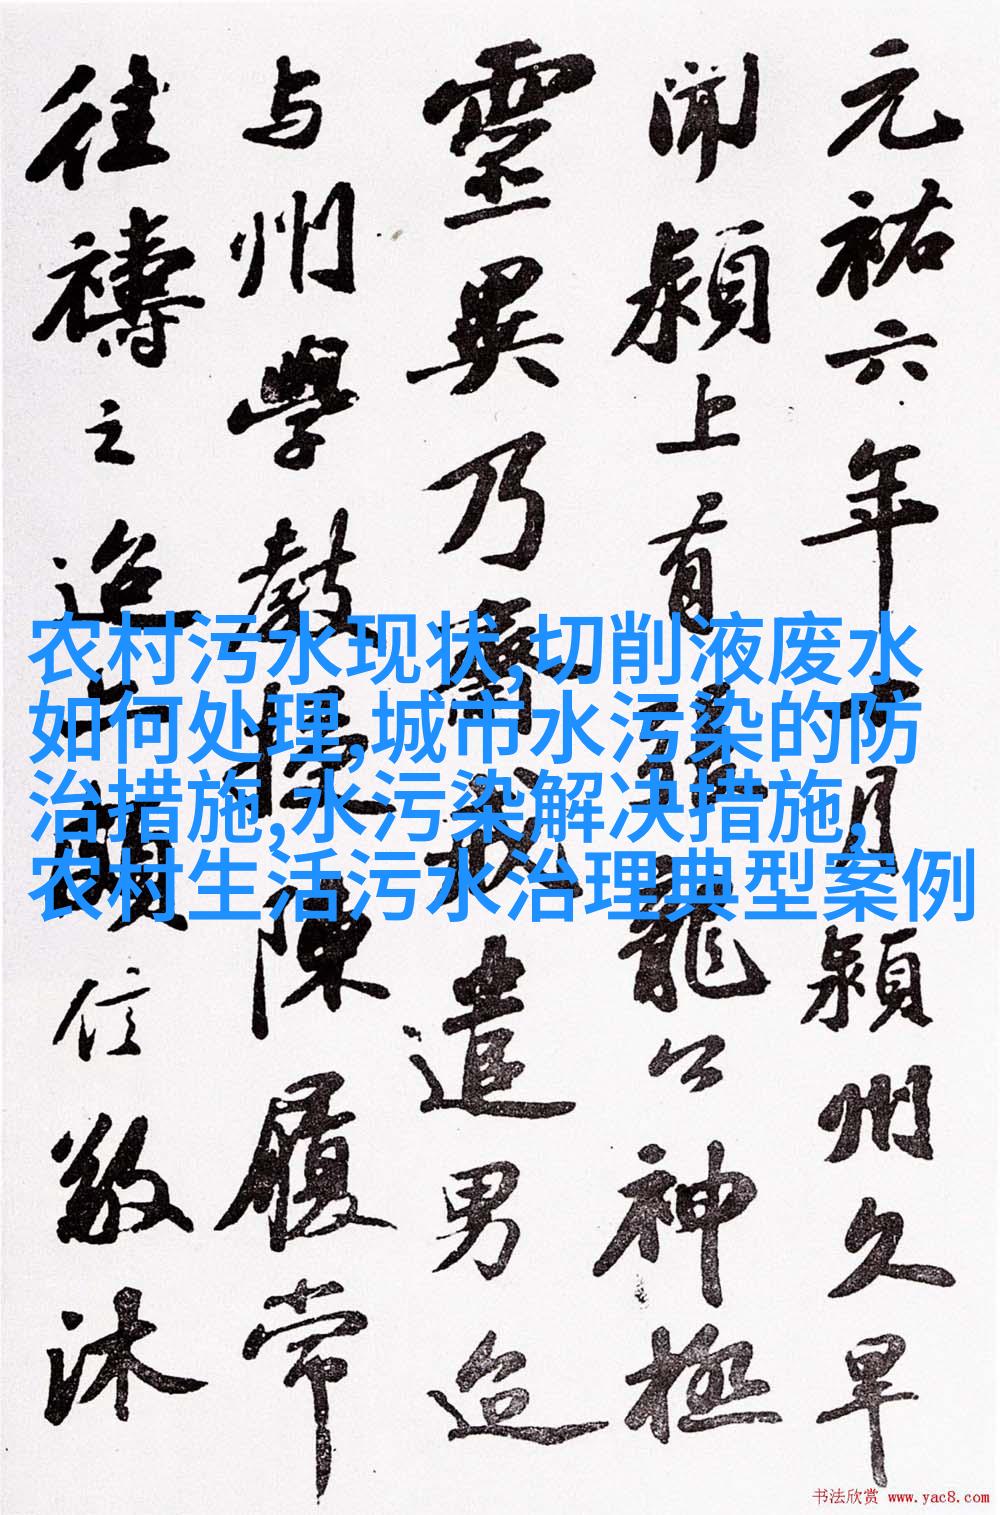 元祐六年十月潁州久旱
聞潁上有張龍公神極
靈異乃齋戒遣男迨
与州學教授陳履常
往禱之迨亦頗信敬沐
农村污水现状,切削液废水
如何处理,城市水污染的防
治措施,水污染解决措施,
农村生活污水治理典型案例
书法欣赏 www.yac8.com